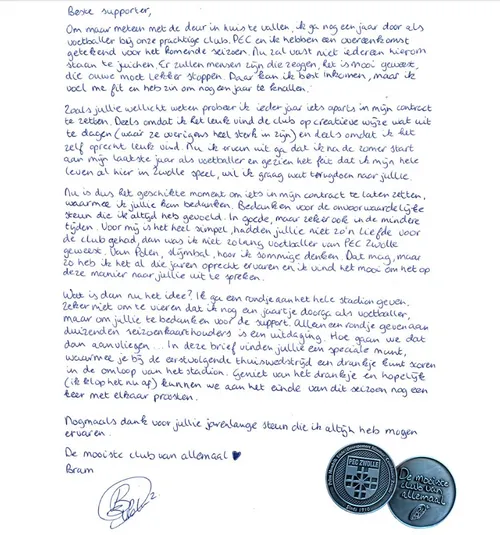 Beste supporter,
Om maar meteen met de deur in huis te vallen, ik ga nog een jaar door als
voetballer bij onze prachtige club. PEC en ik hebben een overeenkomst
getekend voor het komende seizoen. Nu zal vast niet iedereen hierom
staan te juichen. Er zullen mensen zijn die zeggen, het is mooi geweest,
die ouwe moet lekker stoppen. Daar kan ik best inkomen, maar ik
voel me fit en heb zin om nog een jaar te knallen.
Zoals jullie wellicht weten probeer ik ieder jaar iets aparts in mijn contract
te zetten. Deels omdat ik het leuk vind de club op creatieve wijze wat uit
te dagen (waar ze overigens heel sterk in zijn) en deels omdat ik het
zelf oprecht leuk vind. Nu ik ervan uit ga dat ik na de zomer start
aan mijn laatste jaar als voetballer en gezien het feit dat ik mijn hele
leven al hier in Zwolle speel, wil ik graag wat terugdoen naar jullie.
Nu is dus het geschikte moment om iets in mijn contract te laten zetten,
waarmee ik jullie kan bedanken. Bedanken voor de onvoorwaardelijke
steun die ik altijd heb gevoeld. In goede, maar zeker ook in de mindere
tijden. Voor mij is het heel simpel, hadden jullie niet zo'n liefde voor
de club gehad, dan was ik niet zolang voetballer van PEC Zwolle
geweest. Van Polen, slijmbal, hoor ik sommige denken. Dat mag, maar
zo heb ik het al die jaren oprecht ervaren en ik vind het mooi om het op
deze manier naar jullie uit te spreken.
Wat is dan nu het idee? Ik ga een rondje aan het hele stadion geven.
Zeker niet om te vieren dat ik nog een jaartje doorga als voetballer,
maar om jullie te bedanken voor de support. Alleen een rondje geven aan
duizenden seizoenkaarthouders is een uitdaging. Hoe gaan we dat
dan aanvliegen... In deze brief vinden jullie een speciale munt,
waarmee je bij de eerstvolgende thuiswedstrijd een drankje kunt scoren
in de omloop van het stadion. Geniet van het drankje en hopelijk
(ik klop het nu af) kunnen we aan het einde van dit seizoen nog een
keer met elkaar proosten.
Nogmaals dank voor jullie jarenlange steun die ik altijd heb mogen
ervaren.
De mooiste club van allemaal ♥
Bram
PEC ZWOLLE
Sinds 1910
De mooiste
club van
allemaal